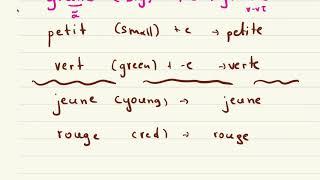 petit (small) +e → petite
vert (green) + -e → verte
jeune (young) → jeune
rouge (red) → rouge